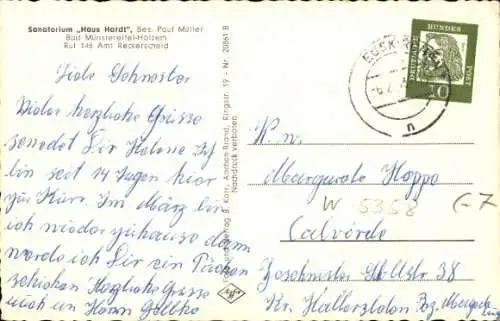 Sanatorium „Haus Hardt", Bes. Paul Müller
Bad Münstereifel-Holzem
Ruf 146 Amt Reckerscheid
Liebe Schwester
Viele herzliche Grüsse
sendet Dir Helene Ich
bin seit 14 Tagen hier
zur Kur. Im März bin
ich wieder zuhause dann
werde ich Dir ein
schicken Herzliche Grüsse
Anton Brand, Ringstr. 19 - Nr. 20861 B
Nachdruck verboten
DEUTSCHE BUNDESPOST
10
n
Margarete Hoppe
W-5358
(-7
Calvörde
Geschwister Schollstr 38
Kr. Haldensleben Bez. Magdeburg